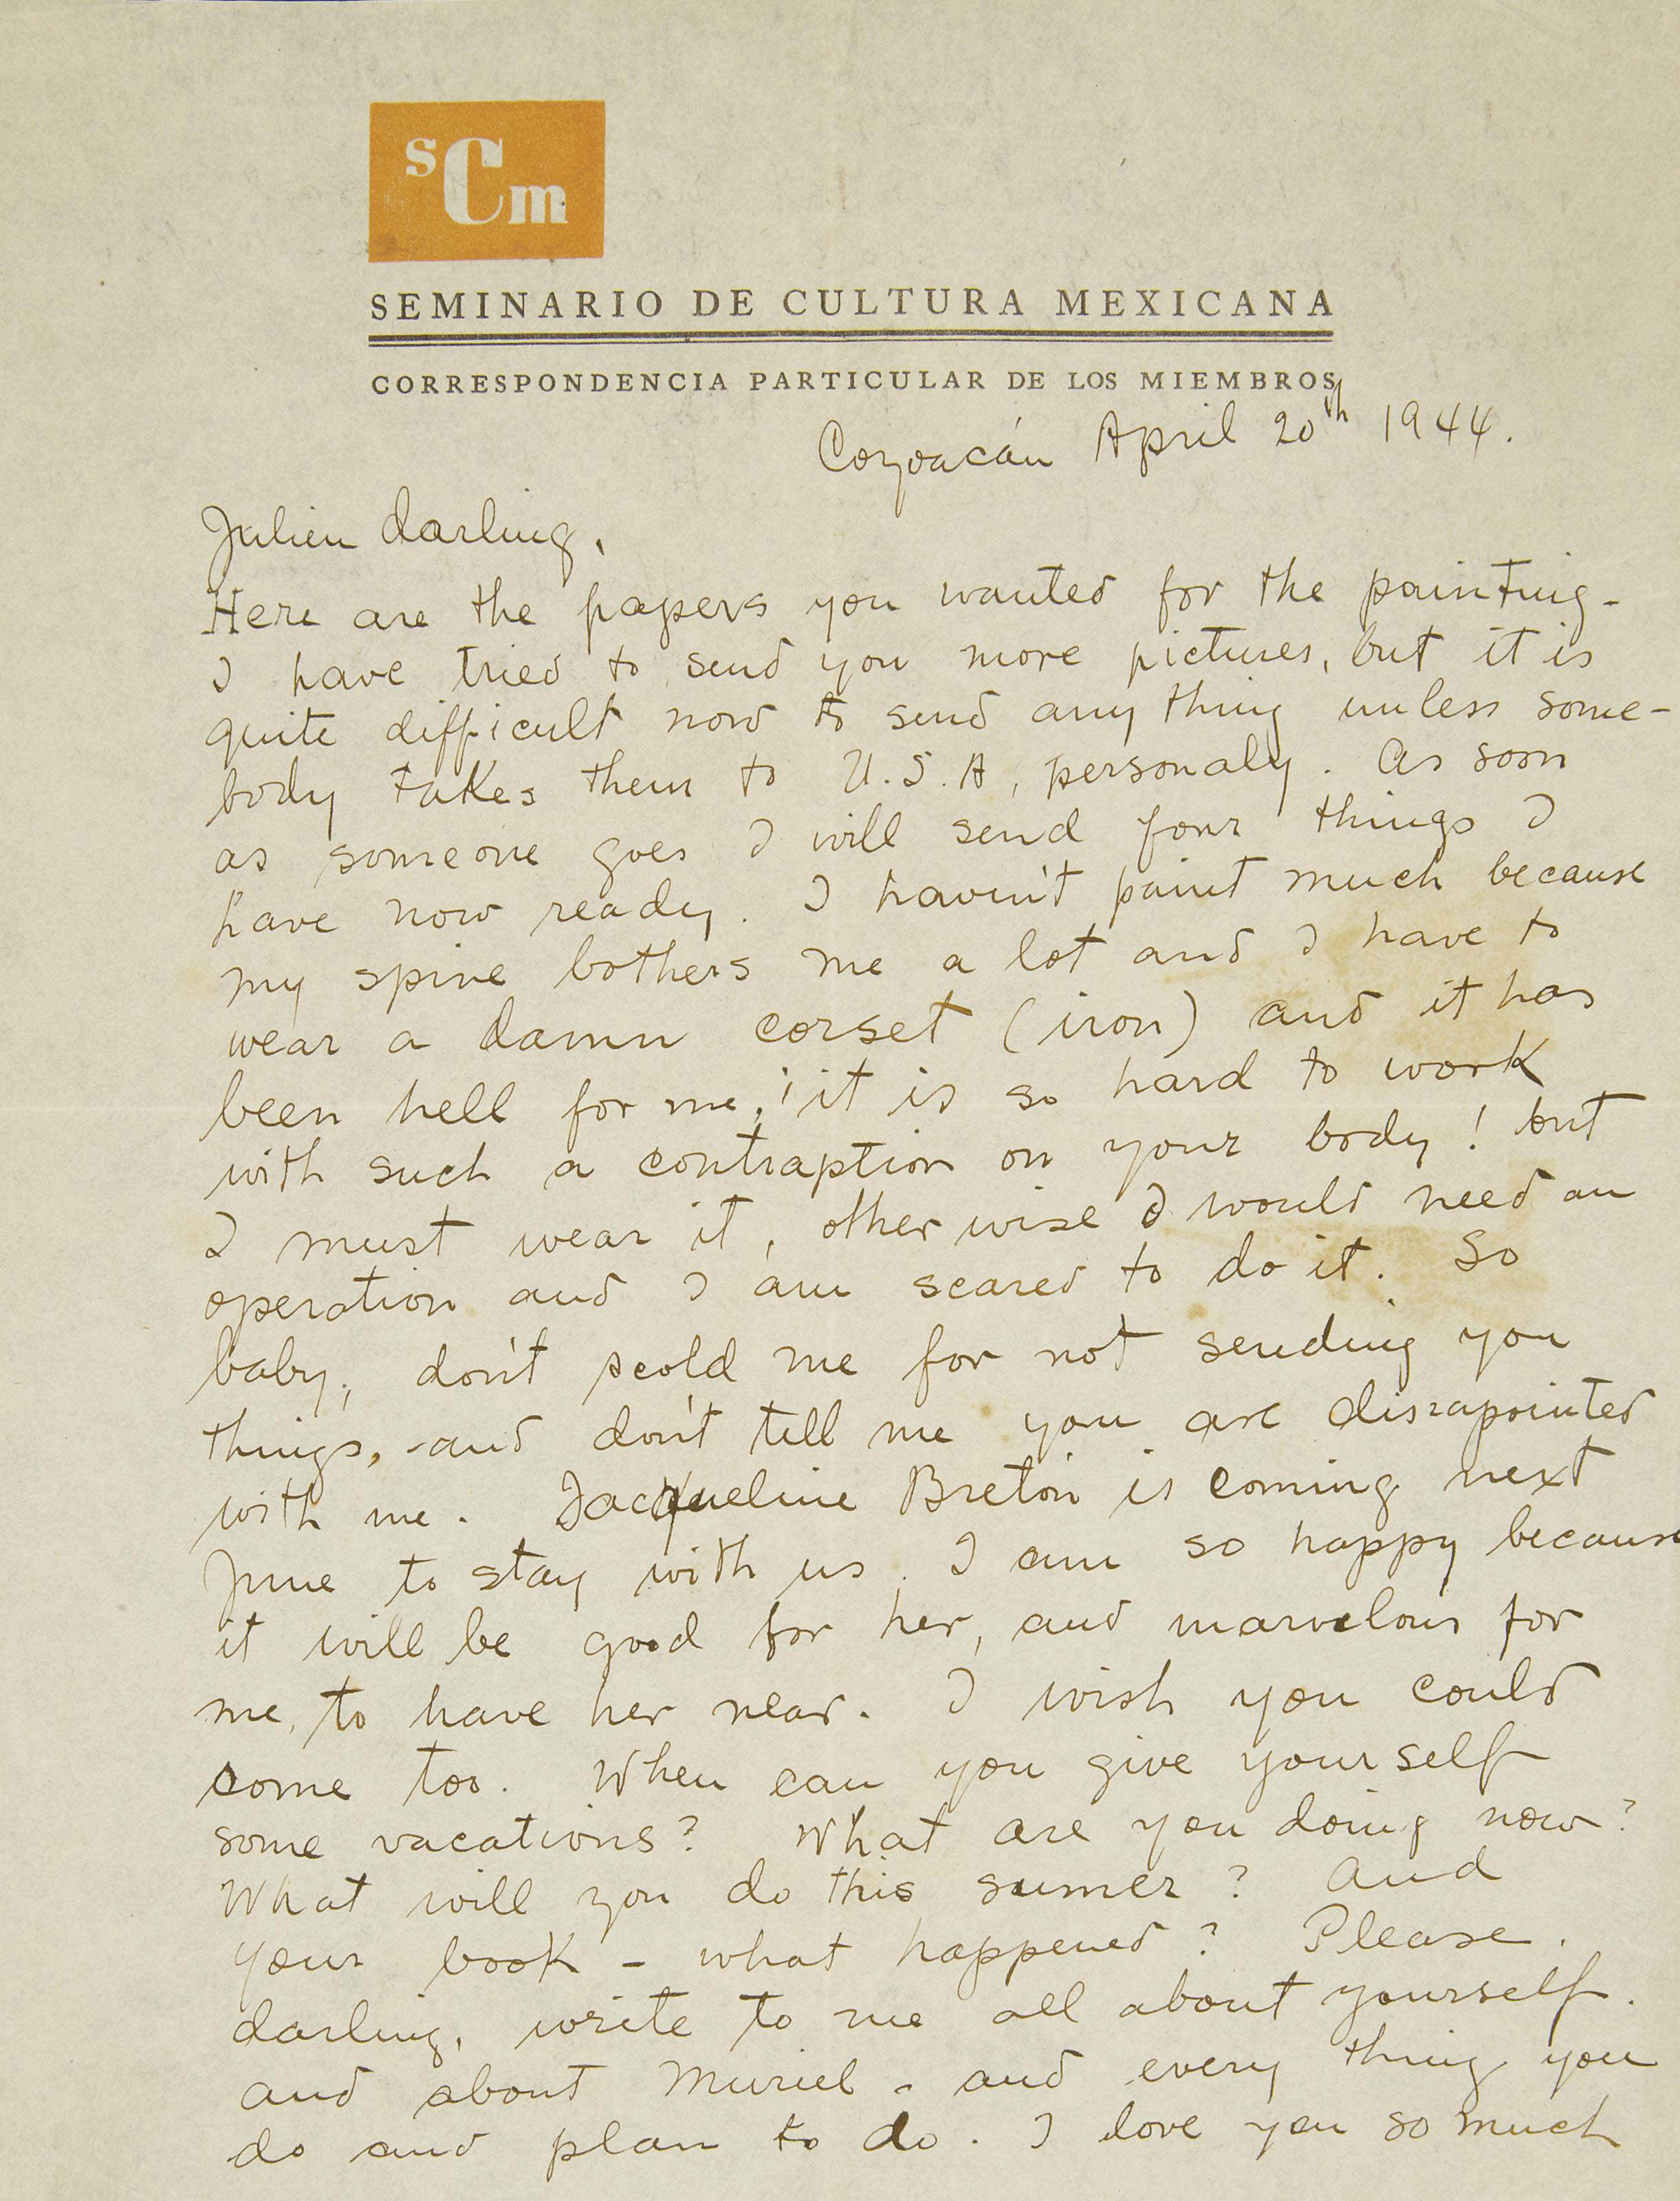 sCm
SEMINARIO DE CULTURA MEXICANA
CORRESPONDENCIA PARTICULAR DE LOS MIEMBROS
Coyoacán April 20th 1944.
Julien darling,
Here are the papers you wanted for the painting-
I have tried to send you more pictures, but it is
quite difficult now to send any thing unless some-
body takes them to U.S.A, personaly. As soon
as someone goes I will send four things I
have now ready. I havin't paint much because
my spine bothers me a lot and I have to
wear a damn corset (iron) and it has
been hell for me, ¡it is so hard to work
with such a contraption on your body! but
I must wear it, other wise I would need an
operation and I am scared to do it. So
baby, don't scold me for not sending you
things, -and don't tell me you are dissapointed
with me. Jacqueline Breton is coming next
June to stay with us. I am so happy because
it will be good for her, and marvelous for
me, to have her near. I wish you could
come too. When can you give your self
some vacations? What are you doing now?
What will you do this sumer? And
your book - what happened? Please.
darling, write to me all about yourself.
and about Muriel - and every thing you
do and plan to do. I love you so much